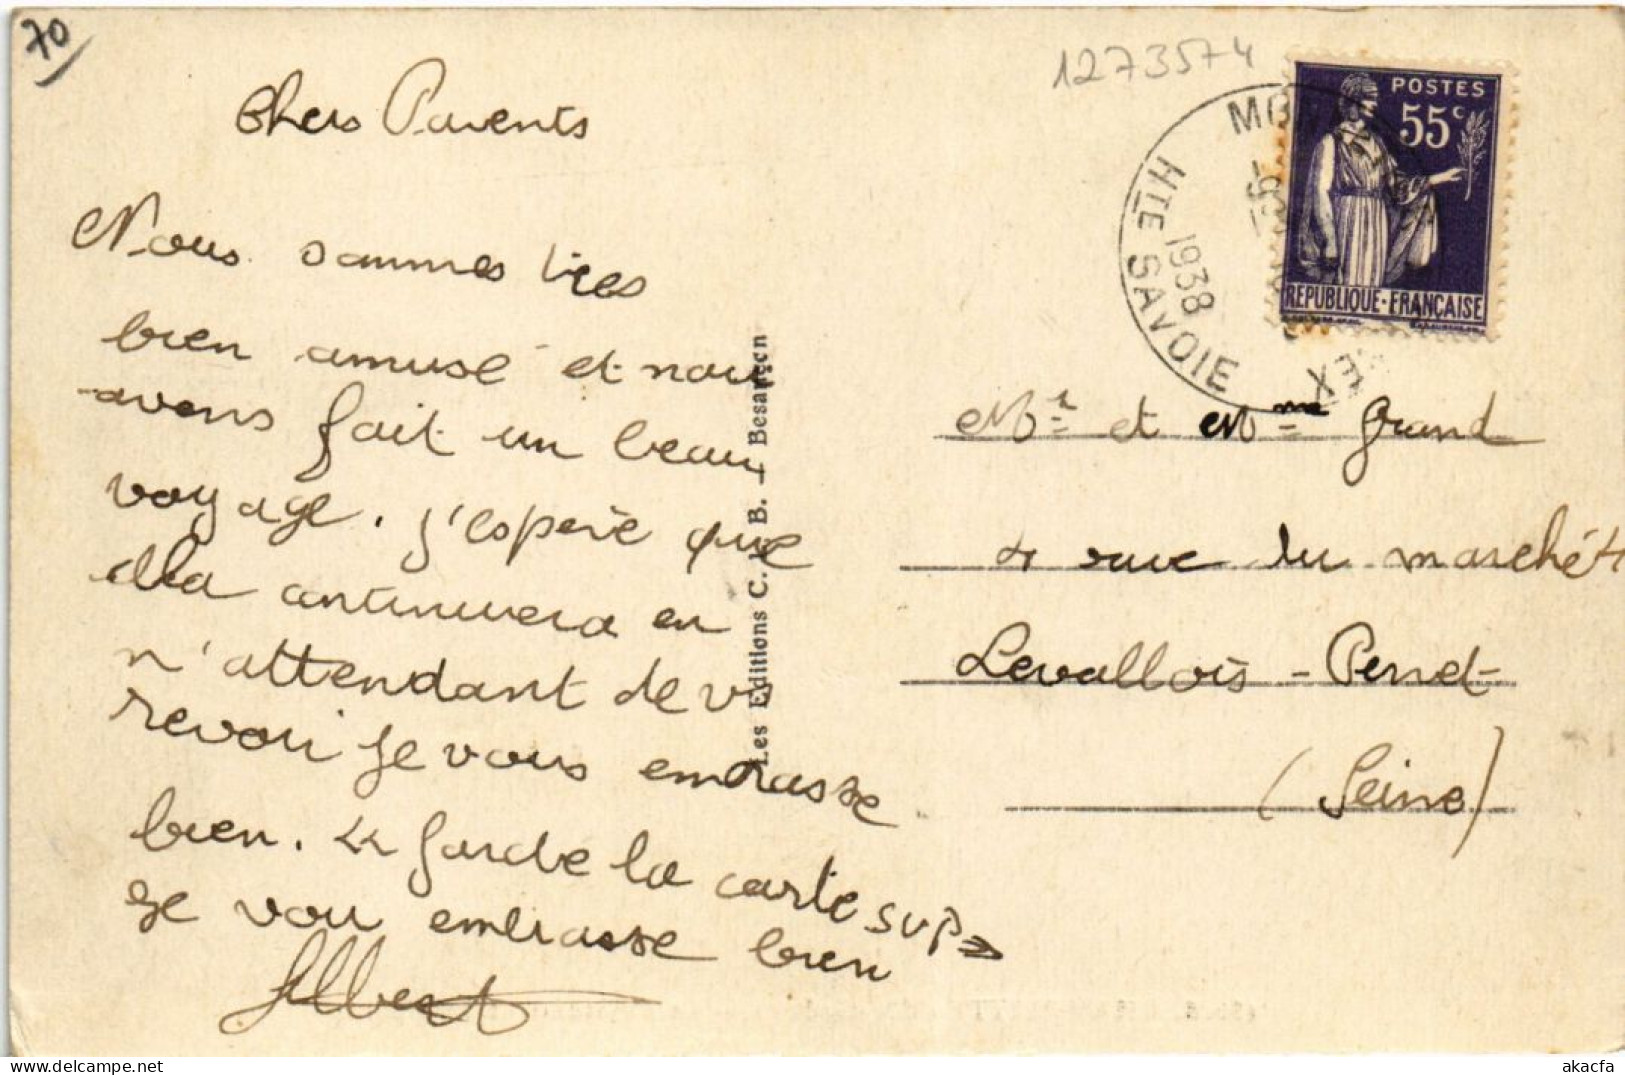 70
1273574
Chers Parents
Nous sommes tres
bien amusé et nous
avons fait un beau
voyage. j'espère que
cela continuera en
n'attendant de vs
revoir je vous embrasse
bien. garde la carte SVP
je vou embrasse bien
Albert
Les Editions C. L. B. - Besançon
POSTES
55c
REPUBLIQUE·FRANÇAISE
HTE SAVOIE
1938
Mr et Mme Grand
4 rue du marché
Levallois-Perret
(Seine)
akacfa